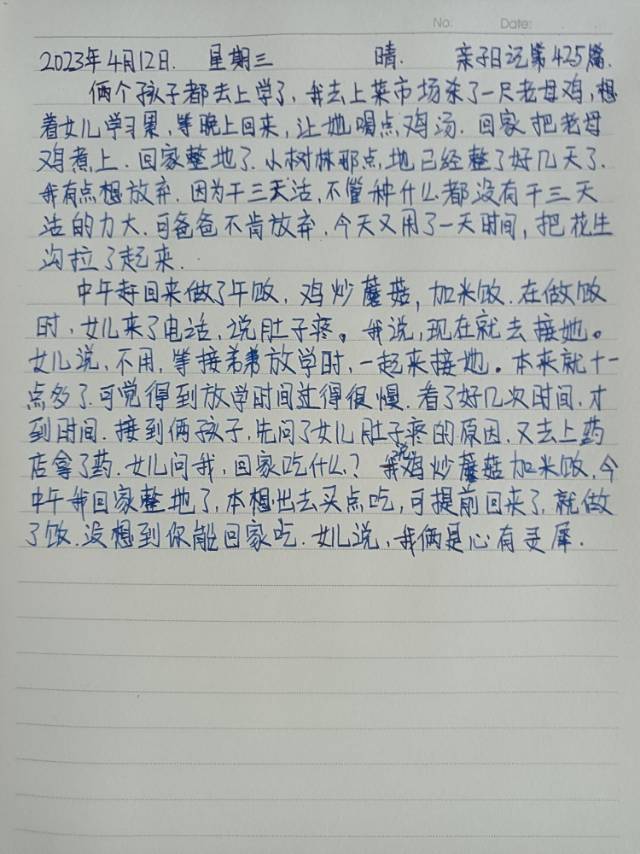 No: Date:
2023年4月12日. 星期三 晴. 亲子日记第425篇.
俩个孩子都去上学了, 我去上菜市场杀了一尺老母鸡, 想
着女儿学习累, 等晚上回来, 让她喝点鸡汤. 回家把老母
鸡煮上. 回家整地了. 小树林那点地已经整了好几天了.
我有点想放弃. 因为干三天活, 不管种什么都没有干三天
活的力大. 可爸爸不肯放弃, 今天又用了一天时间, 把花生
沟拉了起来.
中午赶回来做了午饭, 鸡炒蘑菇, 加米饭. 在做饭
时, 女儿来了电话, 说肚子疼。我说, 现在就去接她。
女儿说, 不用, 等接弟弟放学时, 一起来接她。本来就十一
点多了. 可觉得到放学时间过得很慢. 看了好几次时间, 才
到时间. 接到俩孩子, 先问了女儿肚子疼的原因. 又去上药
店拿了药. 女儿问我, 回家吃什么? 我说鸡炒蘑菇加米饭, 今
中午我回家整地了, 本想出去买点吃, 可提前回来了, 就做
了饭. 没想到你能回家吃. 女儿说, 我俩是心有灵犀.